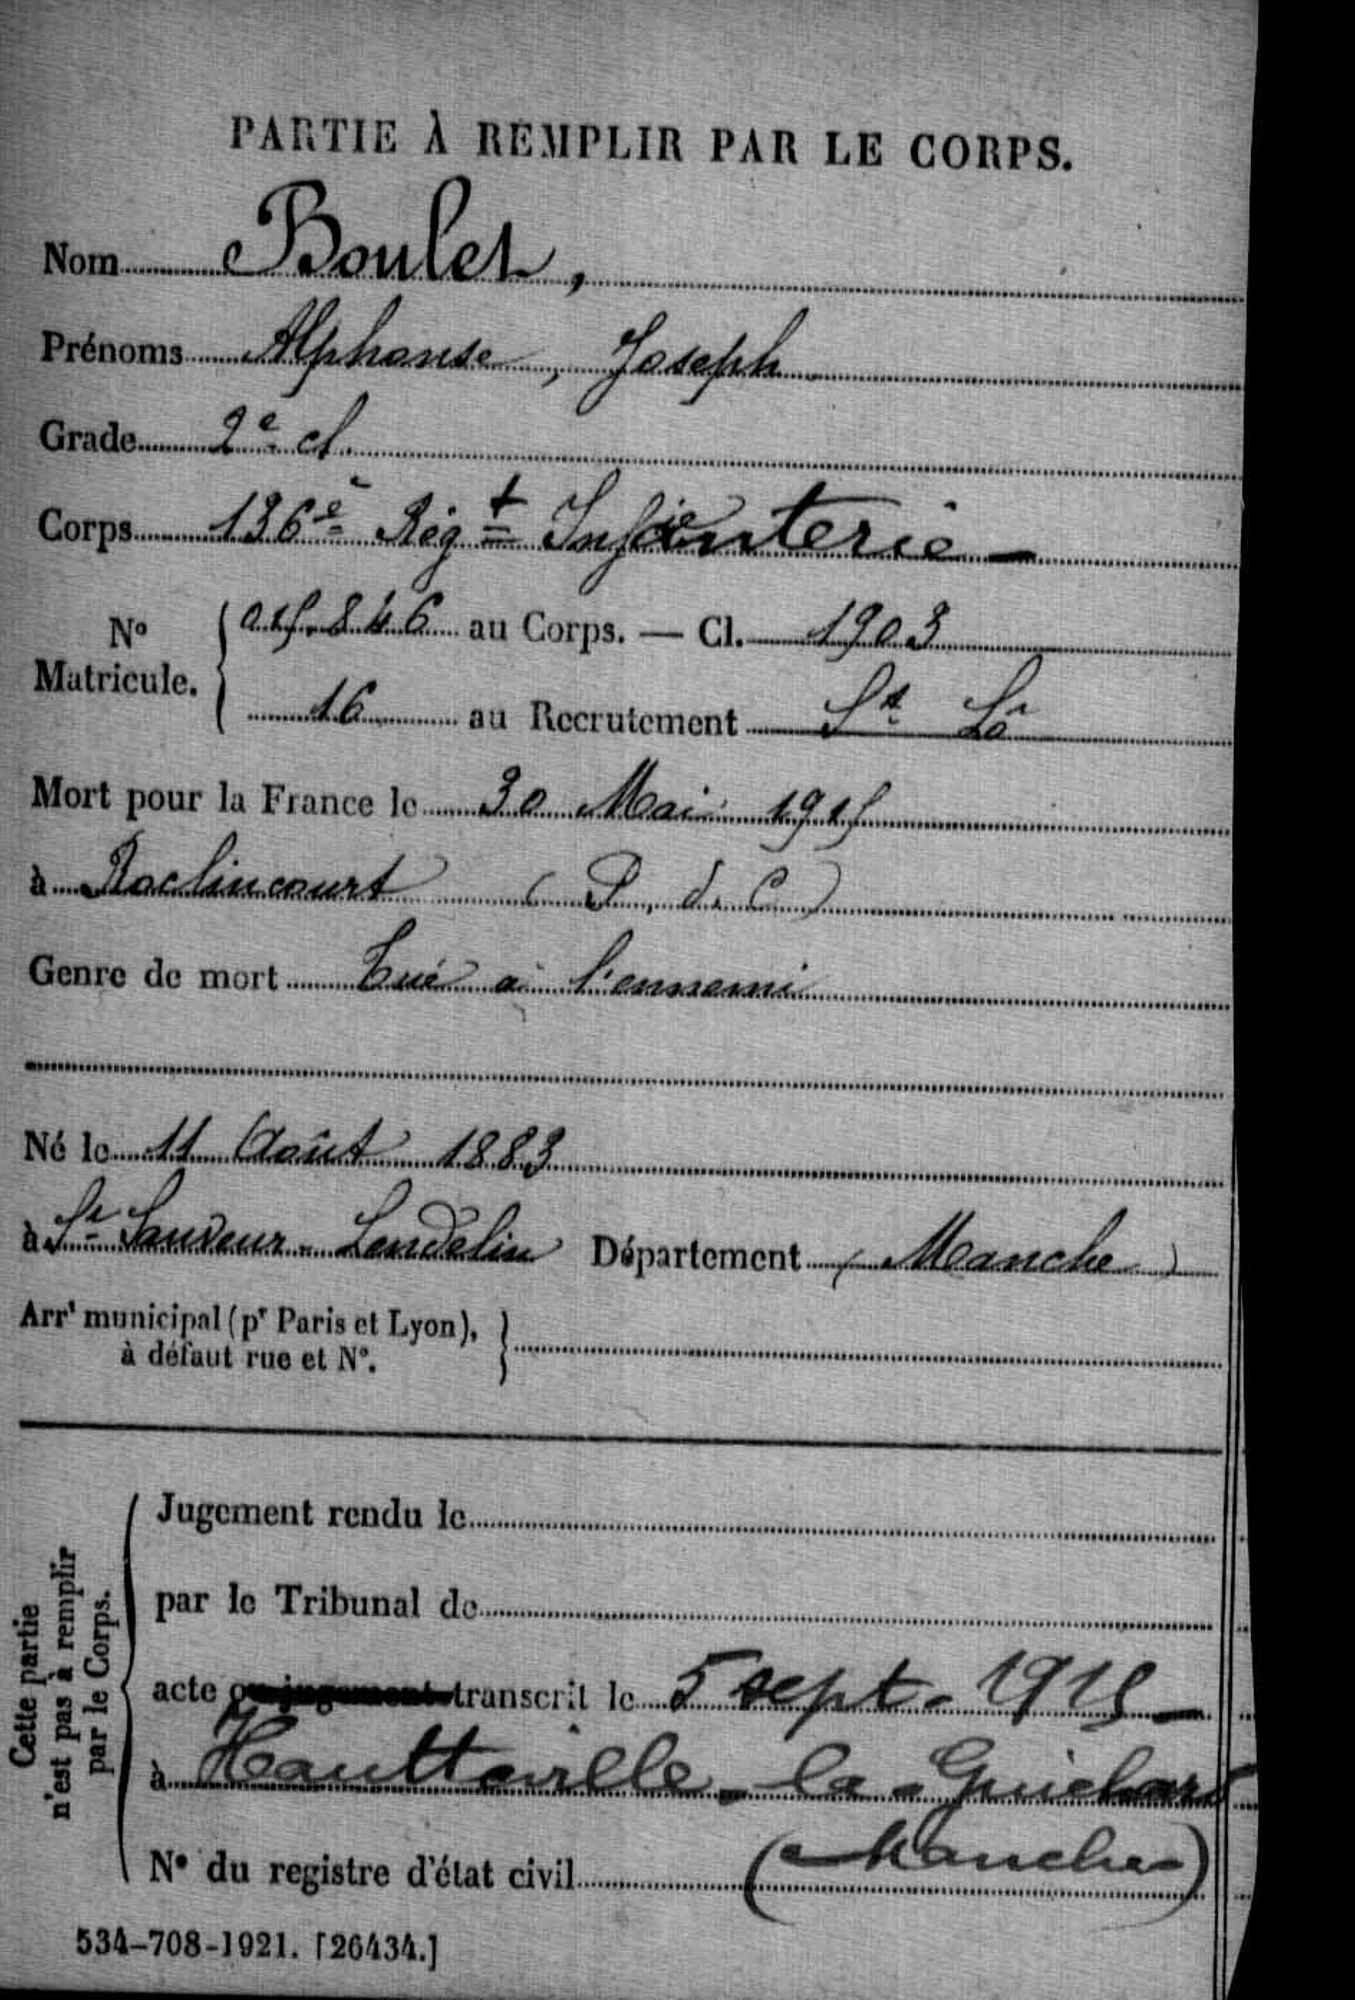 PARTIE À REMPLIR PAR LE CORPS.
Nom Boulet,
Prénoms Alphonse, Joseph
Grade 2e cl.
Corps 136e Régt Infanterie -
No Matricule. { 846 au Corps. — Cl. 1903
16 au Recrutement St Lô
Mort pour la France le 30 Mai 1915
à Roclincourt (P. d. C)
Genre de mort Tué à l'ennemi
Né le 11 Août 1883
à St Sauveur-Lendelin Département (Manche)
Arrt municipal (pr Paris et Lyon), }
à défaut rue et No.
Cette partie
n'est pas à remplir
par le Corps.
Jugement rendu le
par le Tribunal de
acte ou jugement transcrit le 5 sept - 1915 -
à Hautteville-la-Guichard
(Manche)
No du registre d'état civil
534-708-1921. [26434.]